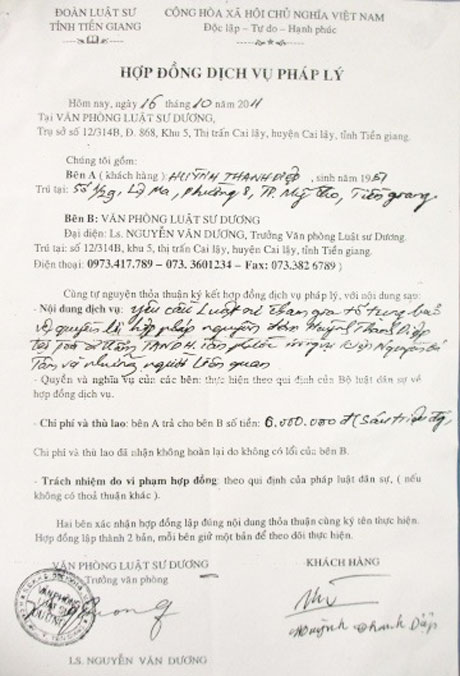 ĐOÀN LUẬT SƯ
TỈNH TIỀN GIANG
CỘNG HÒA XÃ HỘI CHỦ NGHĨA VIỆT NAM
Độc lập – Tự do – Hạnh phúc
HỢP ĐỒNG DỊCH VỤ PHÁP LÝ
Hôm nay, ngày 16 tháng 10 năm 2011
Tại VĂN PHÒNG LUẬT SƯ DƯƠNG,
Trụ sở số 12/314B, Đ. 868, Khu 5, Thị trấn Cai lậy, huyện Cai lậy, tỉnh Tiền giang.
Chúng tôi gồm:
Bên A ( khách hàng ): HUỲNH THANH DIỆP, sinh năm 1951
Trú tại: Số 1/2g, Lộ Ma, Phường 8, TP. Mỹ tho, Tiền giang
Bên B: VĂN PHÒNG LUẬT SƯ DƯƠNG
Đại diện: Ls. NGUYỄN VĂN DƯƠNG, Trưởng Văn phòng Luật sư Dương.
Trú tại: số 12/314B, khu 5, thị trấn Cai lậy, huyện Cai lậy, tỉnh Tiền giang.
Điện thoại: 0973.417.789 – 073. 3601234 – Fax: 073.382 6789 )
Cùng tự nguyện thỏa thuận ký kết hợp đồng dịch vụ pháp lý, với nội dung sau:
- Nội dung dịch vụ: yêu cầu Luật sư tham gia tố tụng bảo
vệ quyền lợi hợp pháp nguyên đơn Huỳnh Thanh Diệp
tại Tòa sơ thẩm TAND H. Tân phước kiện Nguyễn
Tân và những người liên quan
- Quyền và nghĩa Vụ của các bên: thực hiện theo qui định của Bộ luật dân sự về
hợp đồng dịch vụ.
- Chi phí và thù lao: bên A trả cho bên B số tiền: 6.000.000 đ (Sáu triệu đg,
Chi phí và thù lao đã nhận không hoàn lại do không có lổi của bên B.
- Trách nhiệm do vi phạm hợp đồng: theo qui định của pháp luật dân sự, ( nếu
không có thoả thuận khác ).
Hai bên xác nhận hợp đồng lập đúng nội dung thỏa thuận cùng ký tên thực hiện.
Hợp đồng lập thành 2 bản, mỗi bên giữ một bản để theo dõi thực hiện.
VĂN PHÒNG LUẬT SƯ DƯƠNG
Trưởng văn phòng
KHÁCH HÀNG
VĂN PHÒNG
LUẬT SƯ
DƯƠNG
Huỳnh Thanh Diệp
LS. NGUYỄN VĂN DƯƠNG